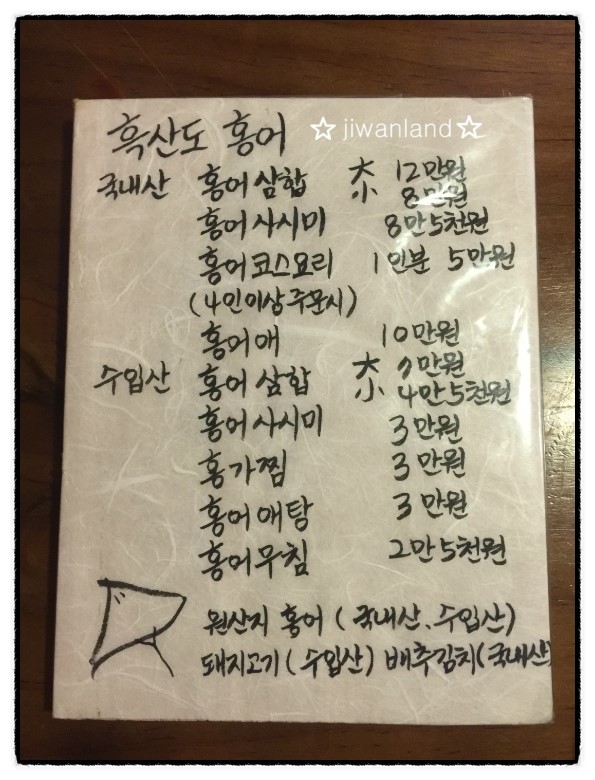 흑산도 홍어 ☆ jiwanland ☆
국내산 홍어 삼합 大 12만원
小 8만원
홍어 사시미 8만 5천원
홍어 코스요리 1인분 5만원
(4인이상 주문시)
홍어애 10만원
수입산 홍어 삼합 大 만원
小 4만 5천원
홍어 사시미 3만원
홍가찜 3만원
홍어애탕 3만원
홍어무침 2만 5천원
원산지 홍어 (국내산, 수입산)
돼지고기 (수입산) 배추김치 (국내산)